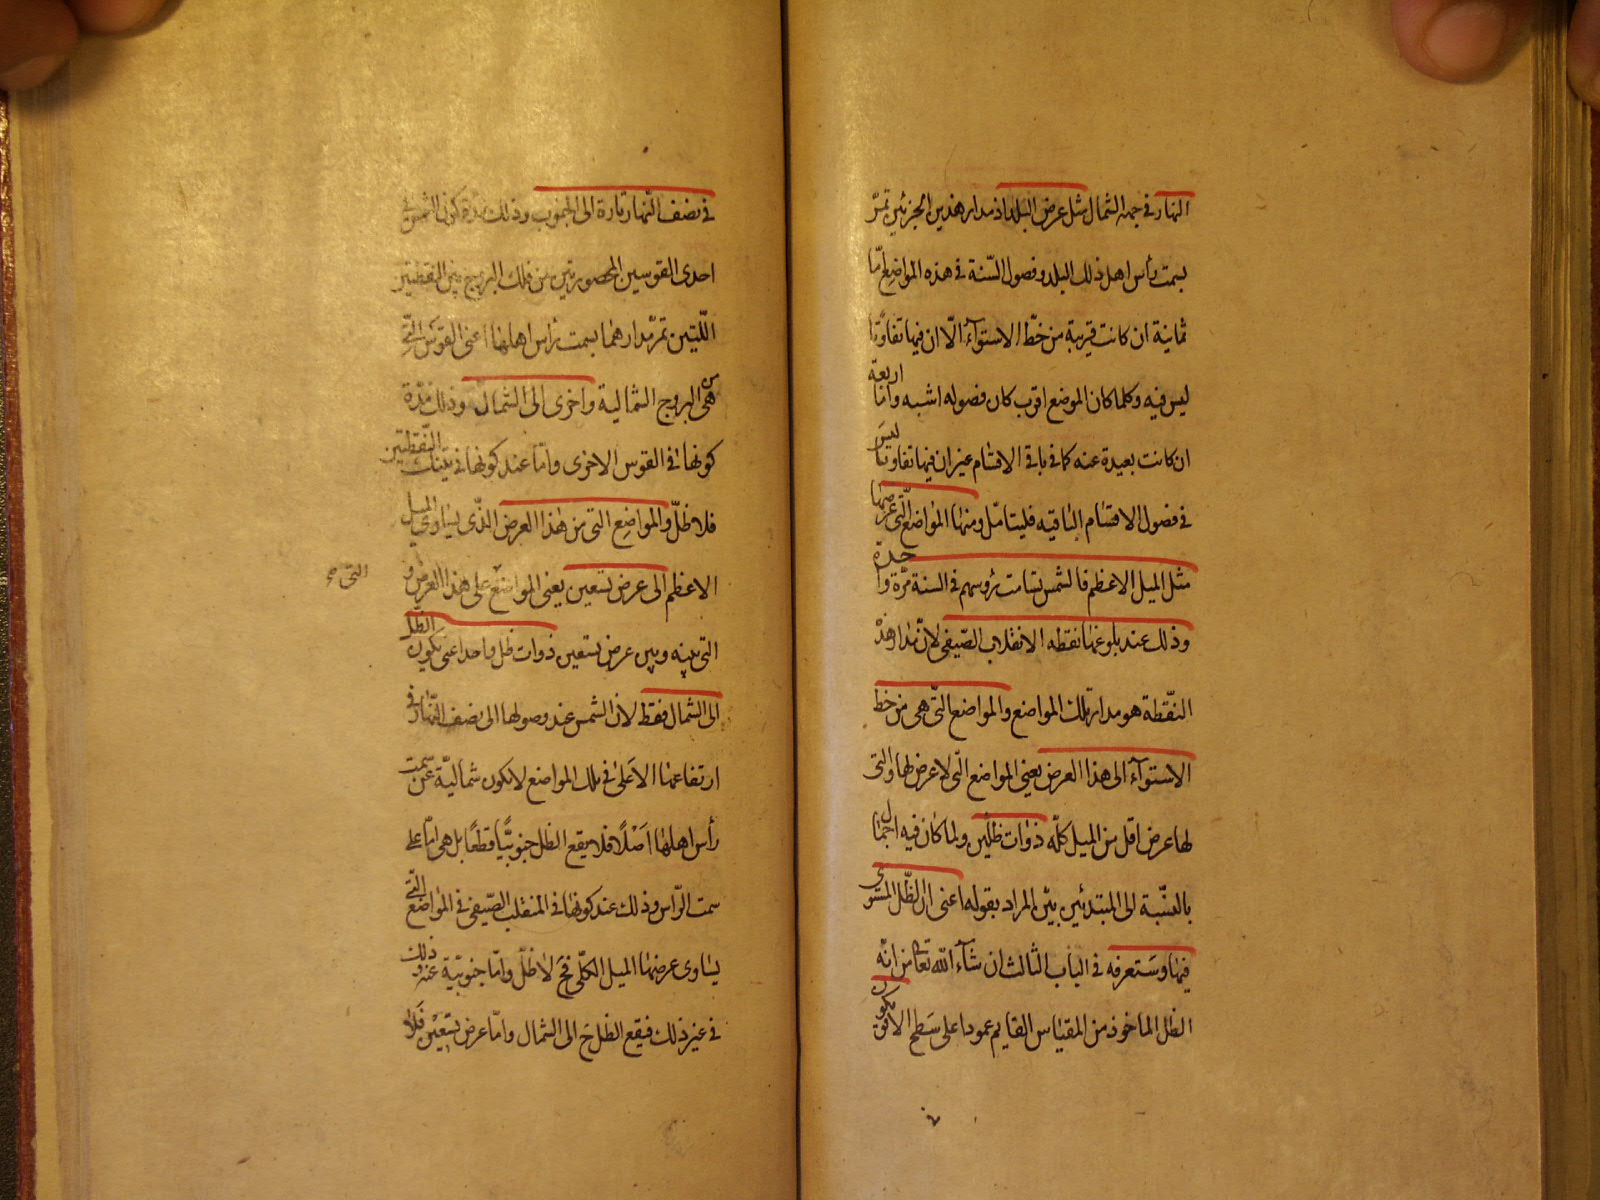 النهار في جهة الشمال مثل عرض البلد اذ مدار هذين الجزئين تمرّ
بسمت رأس اهل ذلك البلد و فصول السّنة في هذه المواضع امّا
ثمانية ان كانت قريبة من خطّ الاستوآء الّا ان فيها تفاوتا
ليس فيه وكلما كان الموضع اقرب كان فصوله اشبه واما اربعة
ان كانت بعيدة عنه كما في باقي الاقسام غير ان فيها تفاوتا ليس
في فصول الاقسام الباقيه فليتامّل ومنها المواضع الّتي عرضها
مثل الميل الاعظم فالشمس تسامت رؤسهم في السنة مرّة واحدة
وذلك عند بلوغها نقطه الانقلاب الصّيفي لانّ مدار هذه
النّقطة هو مدار تلك المواضع والمواضع الّتي هي من خط
الاستوآء الى هذا العرض يعني المواضع الّتي لا عرض لها والتي
لها عرض اقل من الميل كلّه ذوات ظلّين ولما كان فيه اجمال
بالنسّبة الى المبتدئين بيّن المراد بقوله اعني ان الظّل المستوى
فيها وستعرفه في الباب الثالث ان شآء اللّه تعالى من انّه
الظل الماخوذ من المقياس القايم عمودا على سطح الافق يكون
في نصف النّهار تارة الى الجنوب وذلك مدّة كون الشمس في
احدى القوسين المحصورتين من فلك البروج بين النقطتين
اللّتين تمرّ مدارهما بسمت رأس اهلها اعني القوس التّي
هي من البروج الشمالية واخرى الى الشمال وذلك مدّة
كونها في القوس الاخرى وامّا عند كونها في تينك النّقطتين
فلا ظلّ والمواضع التي من هذا العرض الذّي يساوي الميل
الاعظم الى عرض تسعين يعني المواضع على هذا العرض و
التي صح
التي بينه وبين عرض تسعين ذوات ظل واحد اعني يكون الظّل
الى الشمال فقط لان الشمس عند وصولها الى نصف النّهار في
ارتفاعها الاعلى في تلك المواضع لا تكون شماليّة عن سمت
رأس اهلها اصلًا فلا يقع الظل جنوبيًّا قطعًا بل هي امّا على
سمت الرّاس وذلك عند كونها في المنقلب الصّيفي في المواضع التّي
يساوى عرضها الميل الكلّي فح لا ظلّ وامّا جنوبيّة عنه وذلك
في غير ذلك فيقع الظل ح الى الشمال وامّا عرض تسعين فلا